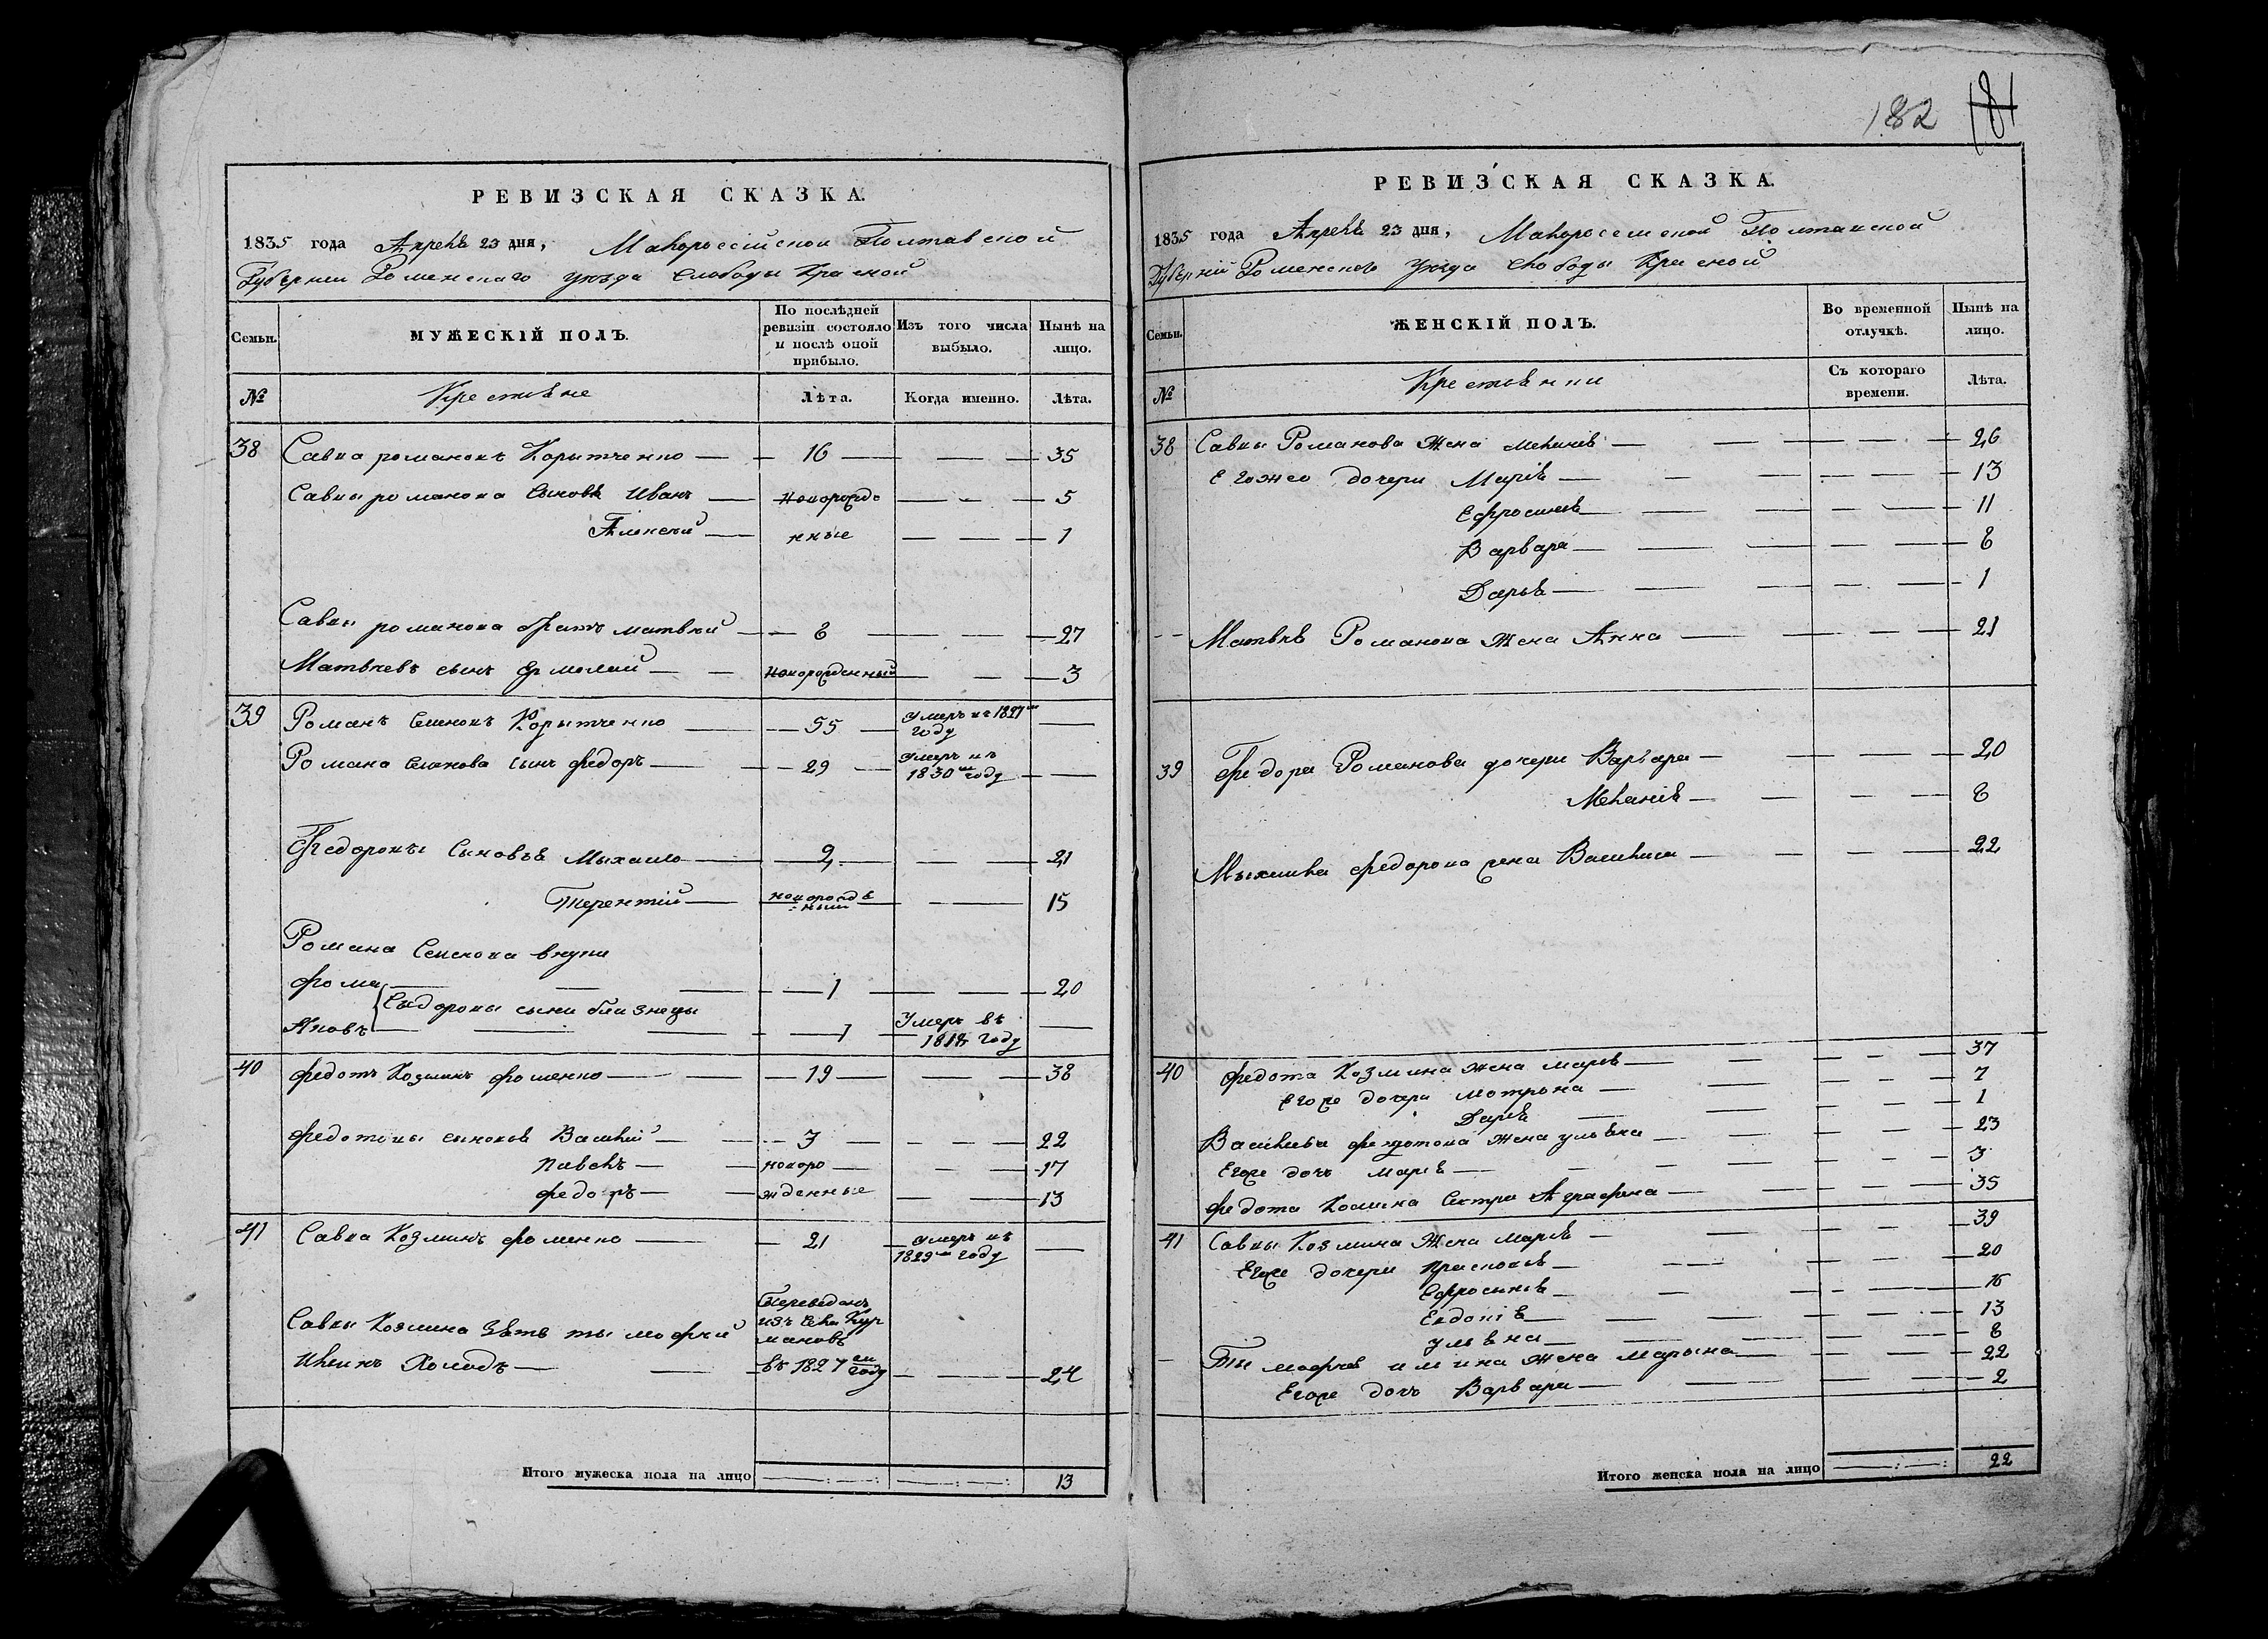 РЕВИЗСКАЯ СКАЗКА.
1835 года Апреля 23 дня, Малороссійской Полтавской
Губернии Роменскаго уезда Слободы Красной
Семьи.
МУЖЕСКІЙ ПОЛЪ.
По послѣдней ревизіи состояло и послѣ оной прибыло.
Изъ того числа выбыло.
Нынѣ на лицо.
№
Крестяне
Лѣта.
Когда именно.
Лѣта.
38 Савка романовъ Корытченко 16 35
Савки романова Сыновя Иванъ новорожде 5
Алексей нные 1
Савки романова братъ матвей 8 27
Матвеевъ сынъ Ермолай новорожденный 3
39 Романъ Семеновъ Корытченко 55 умеръ въ 1827м году
Романа Семенова сынъ федоръ 29 умеръ въ 1830м году
Федоровы Сыновья Михайло 2 21
Терентий новорожде нный 15
Романа Семенова внуки
фома 1 20
Сидоровы сыни близнецы
Яковъ 1 Умеръ въ 1818 году
40 федотъ Козминъ фоменко 19 38
федотовы сыновья Василий 3 22
павелъ новоро 17
федоръ жденные 13
41 Савка Козминъ фоменко 21 умеръ въ 1829м году
Савки Козмина Зять тимофей
Переведенъ изъ Села Кур мановъ
Холодъ въ 1827м году 24
Итого мужеска пола на лицо 13
182 181
РЕВИЗСКАЯ СКАЗКА.
1835 года Апреля 23 дня, Малоросеийской Полтавской
Губерній Роменского Уезда Слободы Красной
Семьи.
ЖЕНСКІЙ ПОЛЪ.
Во временной отлучкѣ.
Нынѣ на лицо.
№
Крестянки
Съ котораго времени.
Лѣта.
38 Савки Романова Жена Меланія 26
Егожео дочери Марія 13
Ефросинія 11
Варвара 8
Дарья 1
Матвея Романова Жена Анна 21
39 Федора Романова дочери Варвара 20
Меланія 8
Михаила федорова жена Василиса 22
40 федота Козмина жена маря 37
Егоже дочери мотрона 7
Даря 1
Василия федотова жена уляна 23
Егоже дочъ маря 3
федота Козмина Сестра Аграфена 35
41 Савки Козмина Жена Маря 39
Егоже дочери прасковя 20
Ефросиния 16
Евдокія 13
уляна 8
Тимофея жена Марына 22
Егоже дочъ Варвара 2
Итого женска пола на лицо 22